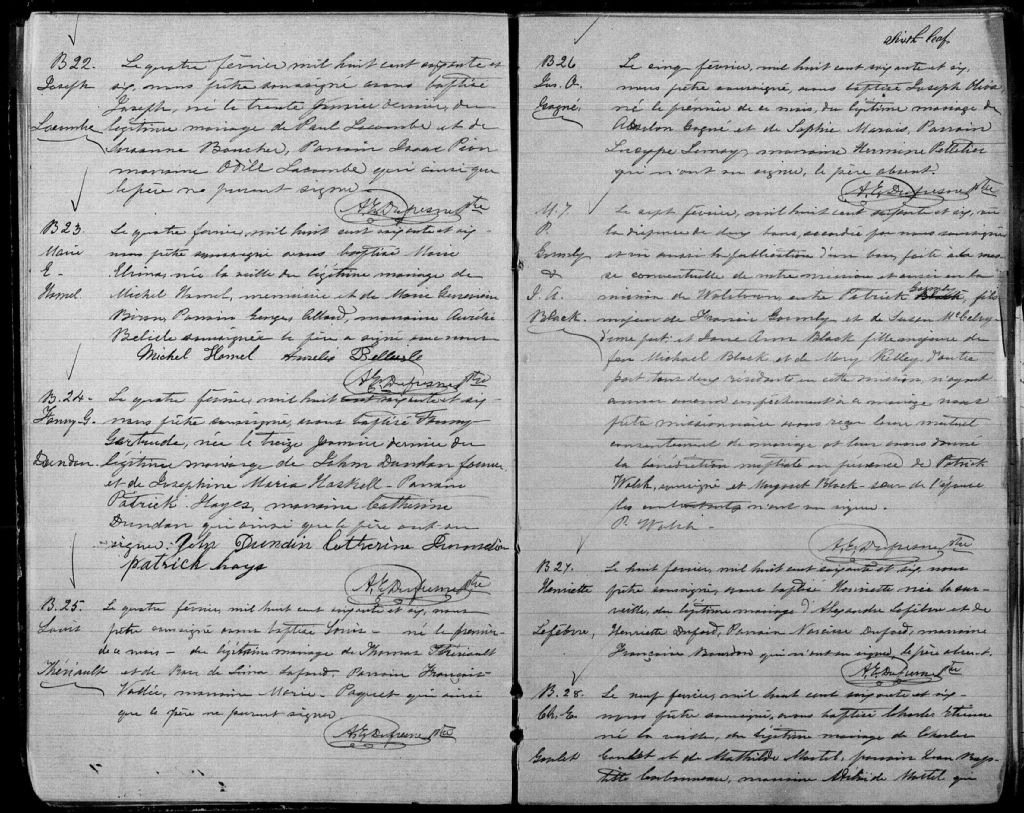 B 22.
Joseph
Lacombe
Le quatre février, mil huit cent soixante et
six, nous prêtre soussigné avons baptisé
Joseph, né le trente janvier dernier, du
légitime mariage de Paul Lacombe et de
Suzanne Boucher, Parrain Isaac Pion
marraine Odill Lacombe qui ainsi que
le père ne peuvent signer.
A.E. Dufresne Ptre
B 23
Marie
E-
Hamel
Le quatre février, mil huit cent soixante et six-
nous prêtre soussigné avons baptisé Marie
née la veille du légitime mariage de
Michel Hamel, menuisier et de Marie Geneviève
Parrain Georges Allard, marraine Aurélie
Belisle soussignée le père a signé avec nous
Michel Hamel Aurelie Bellisle
A.E. Dufresne Ptre
B. 24-
Fanny G.
Dundan.
Le quatre février, mil huit cent soixante et six-
nous prêtre soussigné, avons baptisé Fanny
Gertrude, née le treize janvier dernier du
légitime mariage de John Dundan fermier
et de Josephine Maria Haskell - Parrain
Patrick Hayes, marraine Catherine
Dundan qui ainsi que le père ont su
signer. Dundin Catherine
Patrick hays
A.E. Dufresne Ptre
B. 25.
Louis
Thériault
Le quatre février, mil huit cent soixante et six, nous
prêtre soussigné avons baptisé Louis - né le premier
de ce mois - du légitime mariage de Thomas Thériault
et de Rose de Lima Laford. Parrain François
Vallée, marraine Marie - Paquet qui ainsi
que le père ne peuvent signer
A.E. Dufresne Ptre
sixth leaf
B 26
Jos. O.
Gagné
Le cinq février, mil huit cent soixante et six,
nous prêtre soussigné, avons baptisé Joseph
né le premier de ce mois, du légitime mariage de
Absolon Gagné et de Sophie Marais, Parrain
Lemay, marraine Hermine Pelletier
qui n'ont su signer, le père absent.
A.E. Dufresne Ptre
M. 7
P.
Gormly
&
J. A.
Black.
Le sept février, mil huit cent soixante et six, vu
la dispense de deux bans, accordée par nous soussigné
et vu aussi la publication d'un ban, faite à la mes-
se conventuelle de notre mission et aussi en la
mission de Wolstown, entre Patrick Gormly Black, fils
majeur de Francis Gormly et de Susan
d'une part; et Jane Ann Black fille majeure de
feu Michael Black et de Mary Kelley, d'autre
part, tous deux résidants en cette mission, n'ayant
aucun empêchement à ce mariage nous
prêtre missionnaire avons reçu leur mutuel
consentement de mariage et leur avons donné
la bénédiction nuptiale en présence de Patrick
Walsh, soussigné et Margaret Black - sœur de l'épouse
les contractants n'ont su signer.
P. Walsh -
A.E. Dufresne Ptre
B 27.
Henriette
Lefebvre,
Le huit février, mil huit cent soixante et six nous
prêtre soussigné, avons baptisé Henriette née la sur-
veille, du légitime mariage d'Alexandre Lefebvre et de
Henriette Duford, Parrain Narcisse Duford, marraine
Françoise Bourdon qui n'ont su signer, le père absent.
A.E. Dufresne Ptre
B. 28.
Ch. E.
Goulet
Le neuf février, mil huit cent soixante et six-
nous prêtre soussigné, avons baptisé Charles Etienne
né la veille, du légitime mariage de Charles
Goulet et de Mathilde Martel, parrain Jean Bap-
tiste Carbonneau, marraine Martel qui